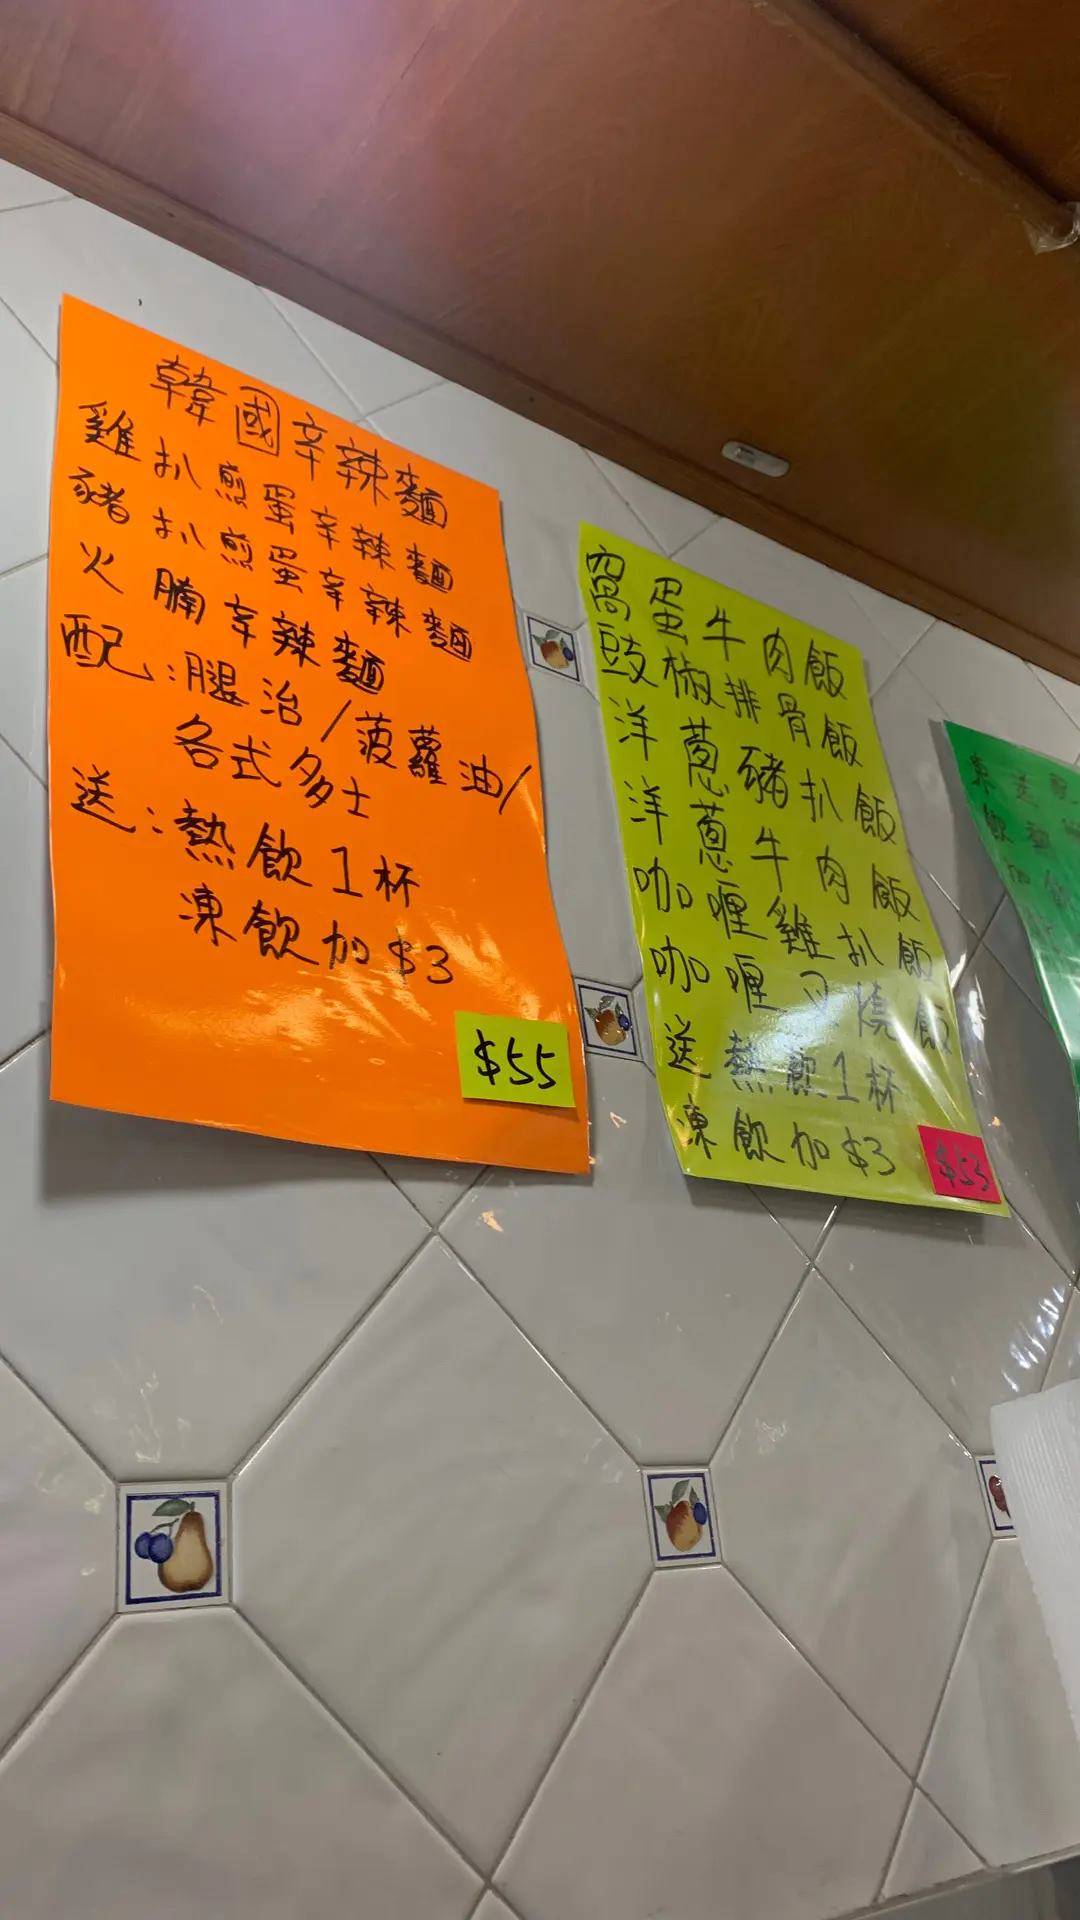 韓國辛辣麵
雞扒煎蛋辛辣麵
豬扒煎蛋辛辣麵
火腩辛辣麵
配:腿治/菠蘿油/
各式多士
送:熱飲1杯
凍飲加$3
$55
窩蛋牛肉飯
豉椒排骨飯
洋蔥豬扒飯
洋蔥牛肉飯
咖喱雞扒飯
咖喱叉燒飯
送熱飲1杯
凍飲加$3
$53